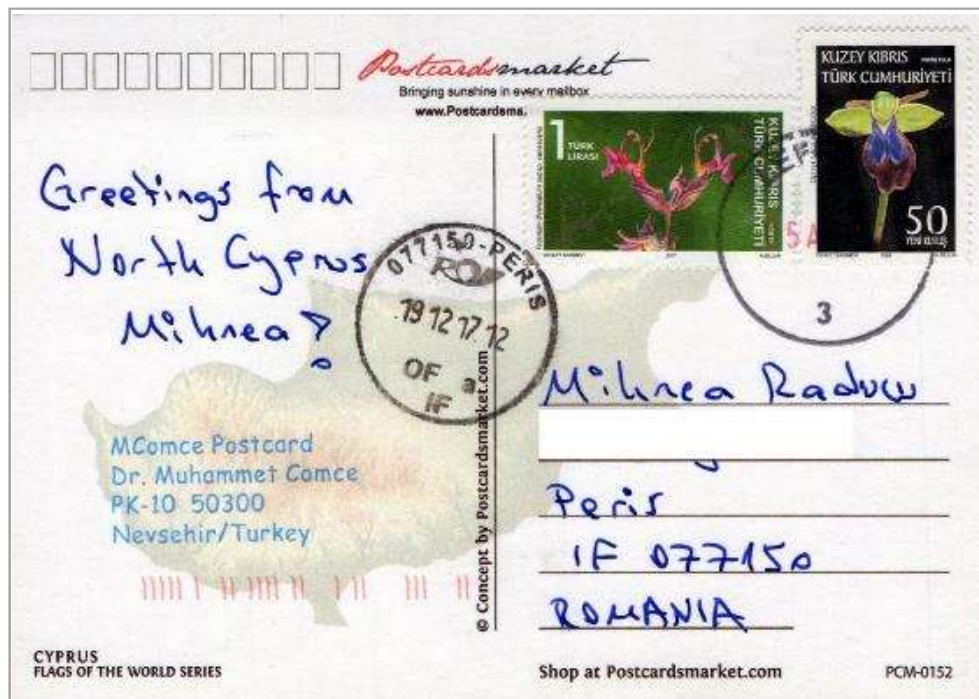 Postcardsmarket
Bringing sunshine in every mailbox
www.Postcardsma
KUZEY KIBRIS
TÜRK CUMHURİYETİ
50
YENİ KURUŞ
1
TÜRK
LİRASI
KUZEY KIBRIS
TÜRK CUMHURİYETİ
3
Greetings from
North Cyprus
Mihnea!
077150-PERIS
19 12 17 12
OF a
IF
MComce Postcard
Dr. Muhammet Comce
PK-10 50300
Nevsehir/Turkey
© Concept by Postcardsmarket.com
Mihnea Raduw
Peris
IF 077150
ROMANIA
CYPRUS
FLAGS OF THE WORLD SERIES
Shop at Postcardsmarket.com
PCM-0152